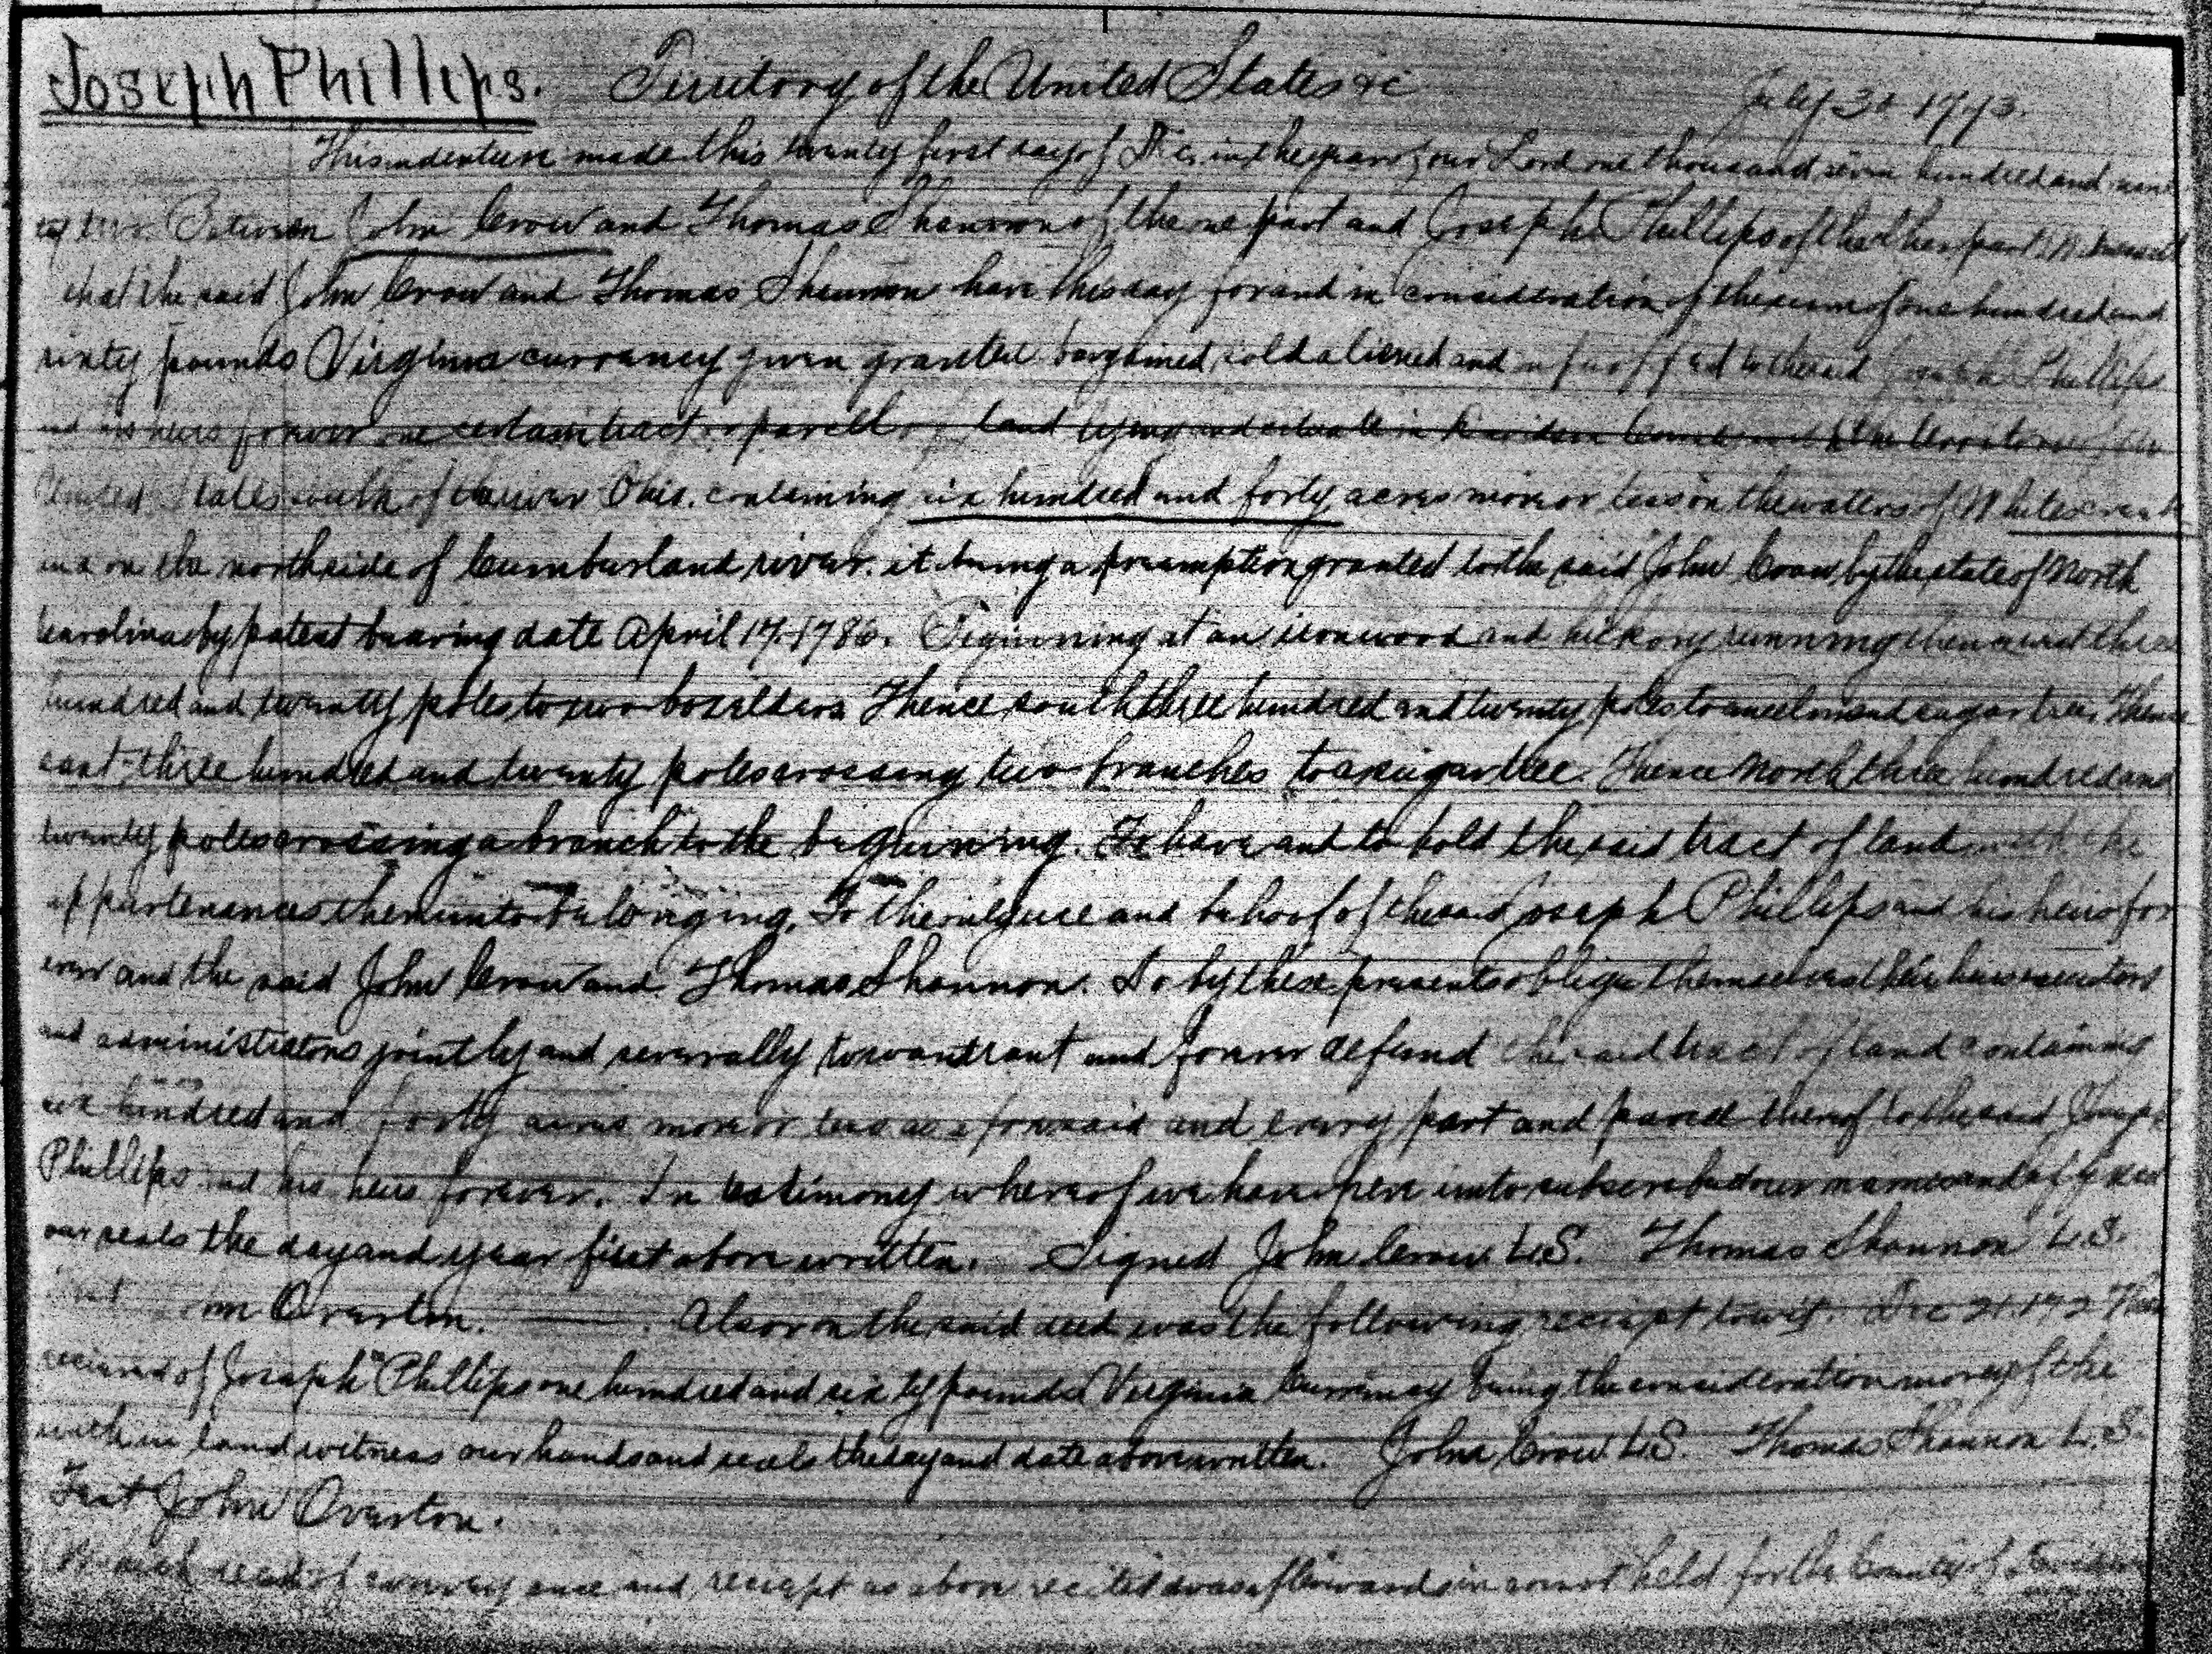 Joseph Phillips. Territory of the United States &c July 31 1793.
This indenture made this twenty first day of Dec. in the year of our Lord one thousand seven hundred and nine
ty two. Between John Crow and Thomas Shannon of the one part and Joseph Phillips of the other part Witnesseth
that the said John Crow and Thomas Shannon have this day for and in consideration of the sum of one hundred and
sixty pounds Virginia currency given granted bargained, sold aliened and enfeoffed to the said Joseph Phillips
and his heirs forever one certain tract or parcell of land lying and situate in Davidson County and the territory of the
United States south of the river Ohio. containing six hundred and forty acres more or less on the waters of Whites creek
and on the north side of Cumberland river. it being a preemption granted to the said John Crow by the state of North
Carolina by patent bearing date April 17. 1786. Beginning at an ironwood and hickory running thence west three
hundred and twenty poles to two boxelders Thence south three hundred and twenty poles to an elm and sugar tree, Thence
east three hundred and twenty poles crossing two branches to a sugar tree. Thence North three hundred and
twenty poles crossing a branch to the beginning. To have and to hold the said tract of land with the
appurtenances thereunto belonging. To the only use and behoof of the said Joseph Phillips and his heirs for
ever and the said John Crow and Thomas Shannon. Do by these presents oblige themselves their heirs executors
and administrators jointly and severally to warrant and forever defend the said tract of land containing
six hundred and forty acres more or less as aforesaid and every part and parcel thereof to the said Joseph
Phillips and his heirs forever. In testimony whereof we have here unto subscribed our names and affixed
our seals the day and year first above written. Signed John Crow L.S. Thomas Shannon L.S.
Overton. Also on the said deed was the following reciept towit. Dec 21. 192 Then
recieved of Joseph Phillips one hundred and sixty pounds Virginia Currency being the consideration money of the
within land witness our hands and seals the day and date above written. John Crow L.S. Thomas Shannon L.S.
Test John Overton.
Which deed of conveyance and reciept as above recited was afterwards in court held for the County of Davidson